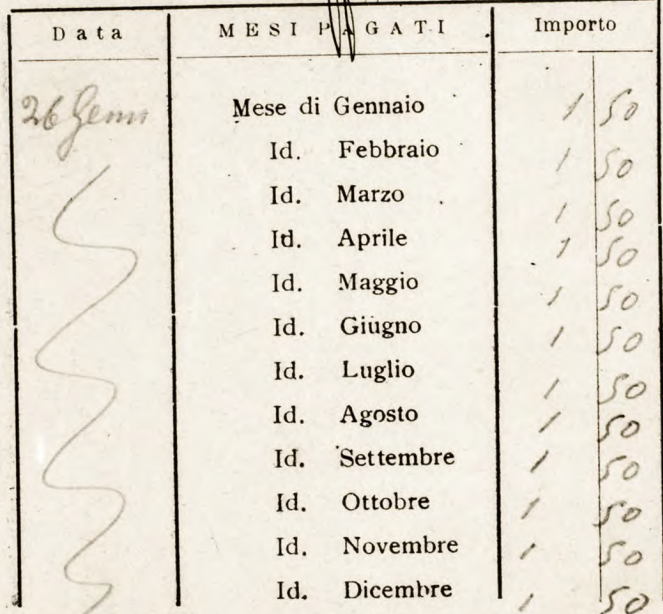 Data MESI PAGATI Importo
26 Genn Mese di Gennaio 1 50
Id. Febbraio 1 50
Id. Marzo 1 50
Id. Aprile 1 50
Id. Maggio 1 50
Id. Giugno 1 50
Id. Luglio 1 50
Id. Agosto 1 50
Id. Settembre 1 50
Id. Ottobre 1 50
Id. Novembre 1 50
Id. Dicembre 1 50